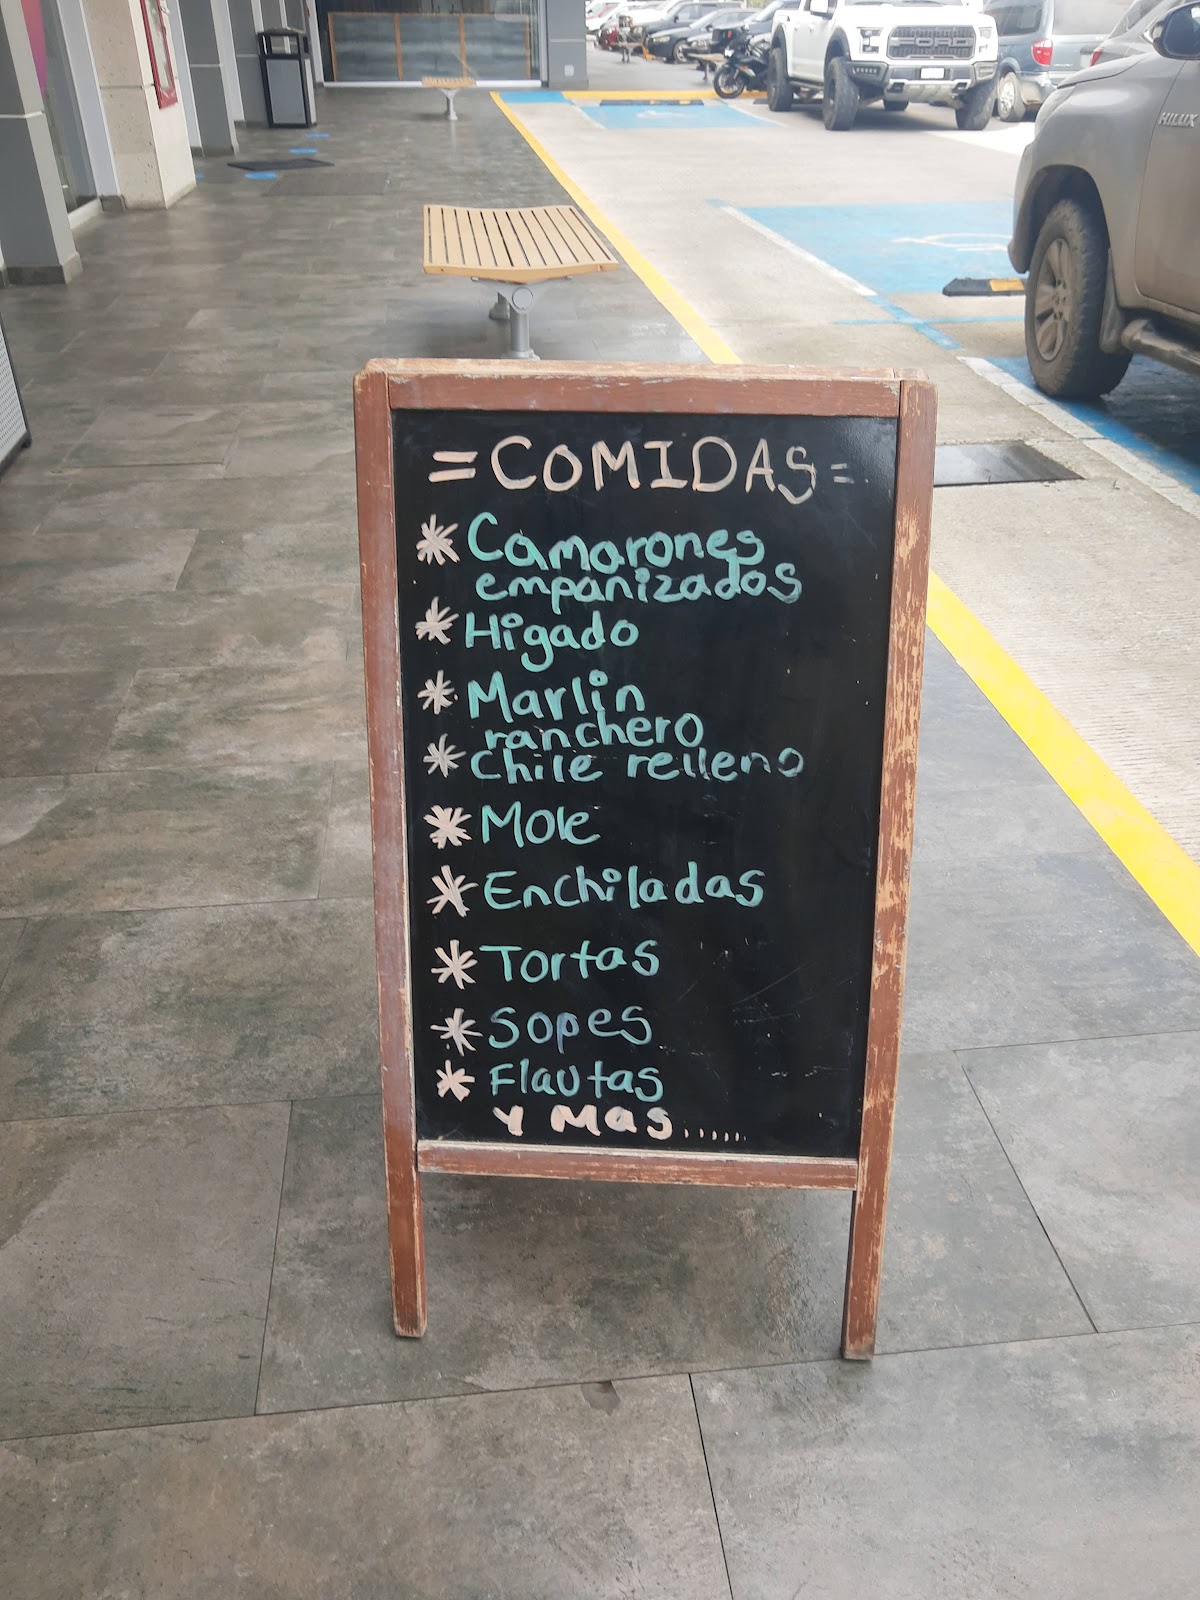 =COMIDAS=
* Camarones
empanizados
* Higado
* Marlin
ranchero
* Chile relleno
* Mole
* Enchiladas
* Tortas
* Sopes
* Flautas
Y Mas......
HILUX